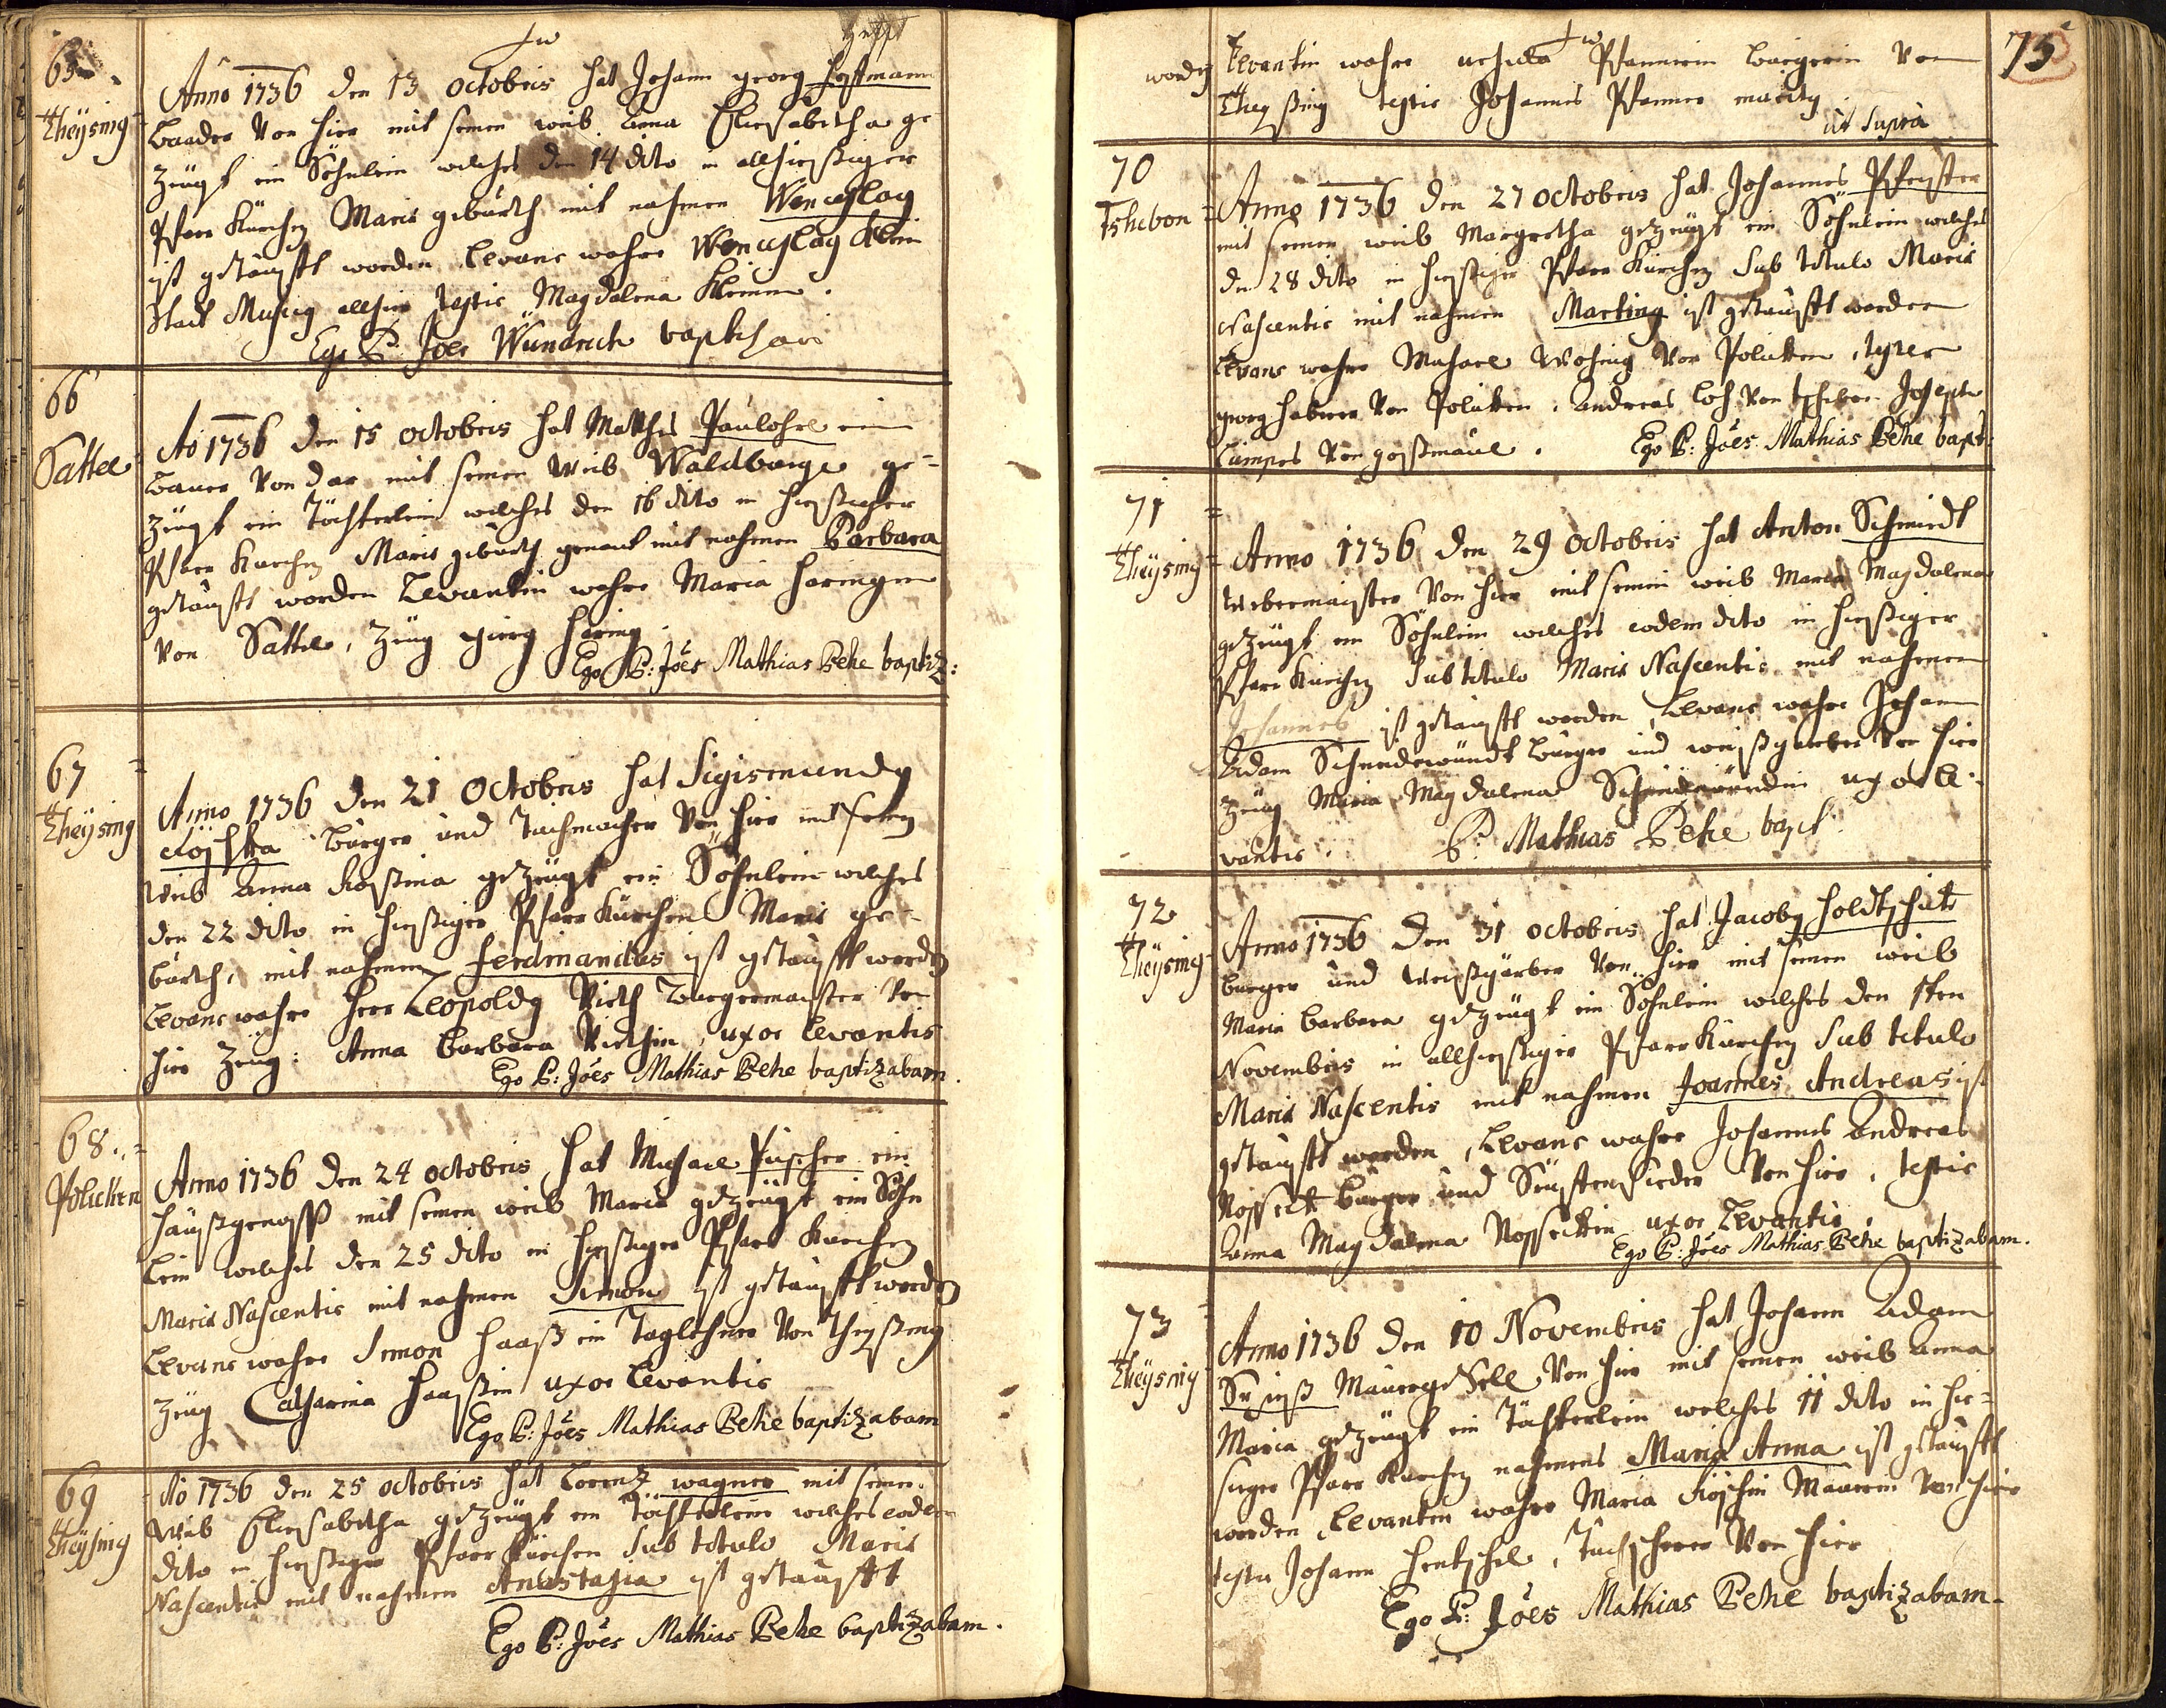 65
Theÿsing
Anno 1736 den 13 octobris hat Johann georg Hoffmann
Baader Von hier mit seinen weib Anna Eliesabetha ge-
zeügt ein Söhnlein welches den 14 dito in allhiesßiger
Pfarr Kürchen Mariæ gebürth mit nahmen Wenceslaus
ist getäufft worden Levans wahre Wenceslaus Klein
Stadt Musicus allhier testis Magdalena Kleinin.
Ego P. Joes Wündrich baptizavi
66
Sattel
Ao 1736 den 15 octobris hat Matthes Paulohrl ein
Bauer Von dar mit seinen Weib Waldburga ge-
zeügt ein Töchterlein welches den 16 dito in hiesßieger
Pfarr Kürchen Mariæ gebürth genant mit nahmen Barbara
getäufft worden Levantin wahre Maria Haringin
Von Sattel, Zeüg georg Häring.
Ego P: Joês Mathias Behe baptiz:
67
Theÿsing
Anno 1736 den 21 Octobris hat Sigismundus
Röschka Bürger und Tuchmacher Von hier mit seinen
Weib Anna Rosßina gezeügt ein Söhnlein welches
den 22 dito in hiesßiger Pfarr Kürchen Mariæ ge-
bürth, mit nahmen Ferdinandus ist getäufft worden
Levans wahre Herr Leopoldus Vieth Burgermaister Von
hier Zeüg: Anna Barbara Viethin, uxor Levantis
Ego P: Joês Mathias Behe baptizabam.
68
Policken
Anno 1736 den 24 octobris hat Michael Püscher ein
Haußgenosß mit seinen weib Maria gezeügt ein Söhn
lein welches den 25 dito in hiesßiger Pfarr Kürchen
Mariæ Nascentis mit nahmen Simon ist getäufft worden
Levans wahre Simon Haaß ein Taglehner Von Theysßing
Zeüg Catharina Haasßin uxor Levantis
Ego P: Joês Mathias Behe baptizabam
69
Theÿsing
Ao 1736 den 25 octobris hat Lorentz wagner mit seinen
Weib Eliesabetha gezeügt ein Töchterlein welches eodem
dito in hiesßiger Pfarr Kürchen Sub titulo Mariæ
Nascentis mit nahmen Anastasia ist getäufft
Ego P: Joês Mathias Behe baptizabam.
75
worden Levantin wahre Pfannerin bürgerin Von
Theysßing testis Johannes Pfanner maritus
ut supra
70
Tshebon
Anno 1736 den 27 octobris hat Johannes Pfeister
mit seinen weib Margretha gezeügt ein Söhnlein welches
den 28 dito in hiesßiger Pfarr Kürchen Sub titulo Mariæ
Nascentis mit nahmen Martinus ist getäufft worden
Levans wahre Michael Von Polikken, testes
georg Habner Von Polikken, Andreas Loh Von tscheben Joseph
Lumpes Von
Ego P: Joês Mathias Behe bapt:
71
Theÿsing
Anno 1736 den 29 Octobris hat Anton Schmiedt
Webermaister Von hier mit seinen weib Maria Magdalena
gezeügt ein Söhnlein welches eodem dito in hiesßiger
Pfarr Kürchen Sub titulo Mariæ Nascentis mit nahmen
Johannes ist getäufft worden, Levans wahre Johann
Adam Schmidewündt Bürger und weißgärber Von hier
Zeüg Maria Magdalena uxor le-
vantis. P: Mathias Behe bapt.
72
Theÿsing
Anno 1736 den 31 octobris hat Jacobus Holdtschut
burger und Weißgärber Von hier mit seinen weib
Maria Barbara gezeügt ein Söhnlein welches den 1ten
Novembris in allhiesßiger Pfarr Kürchen Sub titulo
Mariæ Nascentis mit nahmen Joannes Andreas ist
getäufft worden, Levans wahre Johannes Andreas
Nosseck Bürger und Seüffensieder Von hier, testis
Anna Magdalena Nosseckin uxor Levantis.
Ego P: Joês Mathias Behe baptizabam.
73
Theÿsing
Anno 1736 den 10 Novembris hat Johann Adam
Maurergesell Von hier mit seinen weib Anna
Maria gezeügt ein Töchterlein welches 11 dito in hie-
siger Pfarr Kürchen nahmens Maria Anna ist getäufft
worden Levantin wahre Maria Röschin Maurerin Von hier
testis Johann Hentschel, Tuchscherer Von hier
Ego P: Joês Mathias Behe baptizabam.